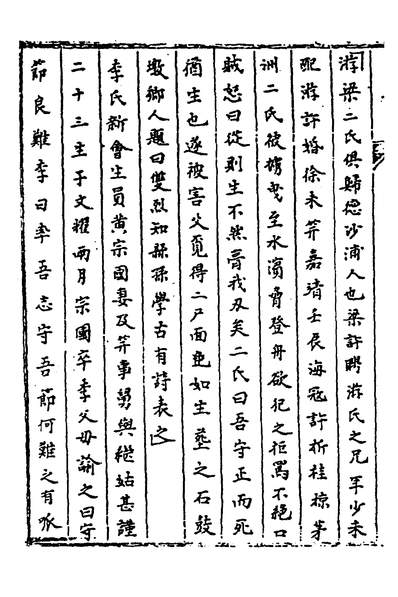 游梁二氏俱歸德沙浦人也梁許聘游氏之兄年少未
配游許婚徐未笄嘉靖壬辰海寇許折桂掠茅
洲二氏被擄曳至水濵脅登舟欲犯之拒罵不絕口
賊怒曰從則生不然膏我刃矣二氏曰吾守正而死
猶生也遂被害父覓得二尸面色如生塟之石鼓
墩鄉人題曰雙烈知縣孫學古有詩表之
李氏新會生員黃宗國妻及笄事舅與繼姑甚謹
二十三生子文耀兩月宗國卒李父母諭之曰守
節良難李曰率吾志守吾節何難之有哌